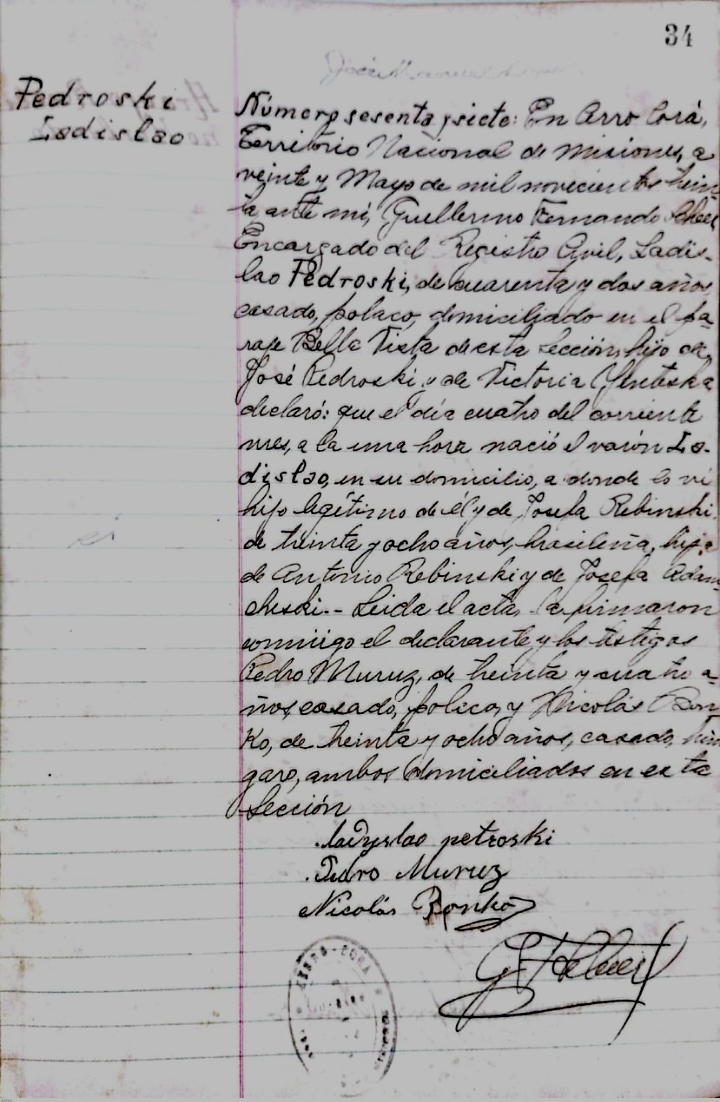 34
Pedroski
Ladislao
Número sesenta y siete: En Cerro Corá,
Territorio Nacional de Misiones, a
veinte y Mayo de mil novecientos trein
ta ante mi, Guillermo Fernando
Encargado del Registro Civil, Ladis-
lao Pedroski, de cuarenta y dos años
casado, polaco, domiciliado en el pa-
raje Bella Vista de esta Sección, hijo de
José Pedroski y de Victoria
declaró: que el día cuatro del corriente
mes, a la una hora nació el varón La-
dislao, en su domicilio, a donde lo vi
hijo legítimo de él y de Josefa Rebinski
de treinta y ocho años, brasileña, hija
de Antonio Rebinski y de Josefa Adam-
cheski.- Leida el acta, la firmaron
conmigo el declarante y los testigos
Pedro Muruz, de treinta y cuatro a-
ños, casado, polaco, y Nicolás Bon
ko, de treinta y ocho años, casado, hún
garo, ambos domiciliados en esta
Sección
ladyslao petroski
Pedro Muruz
Nicolás Bonko
CERRO-CORA